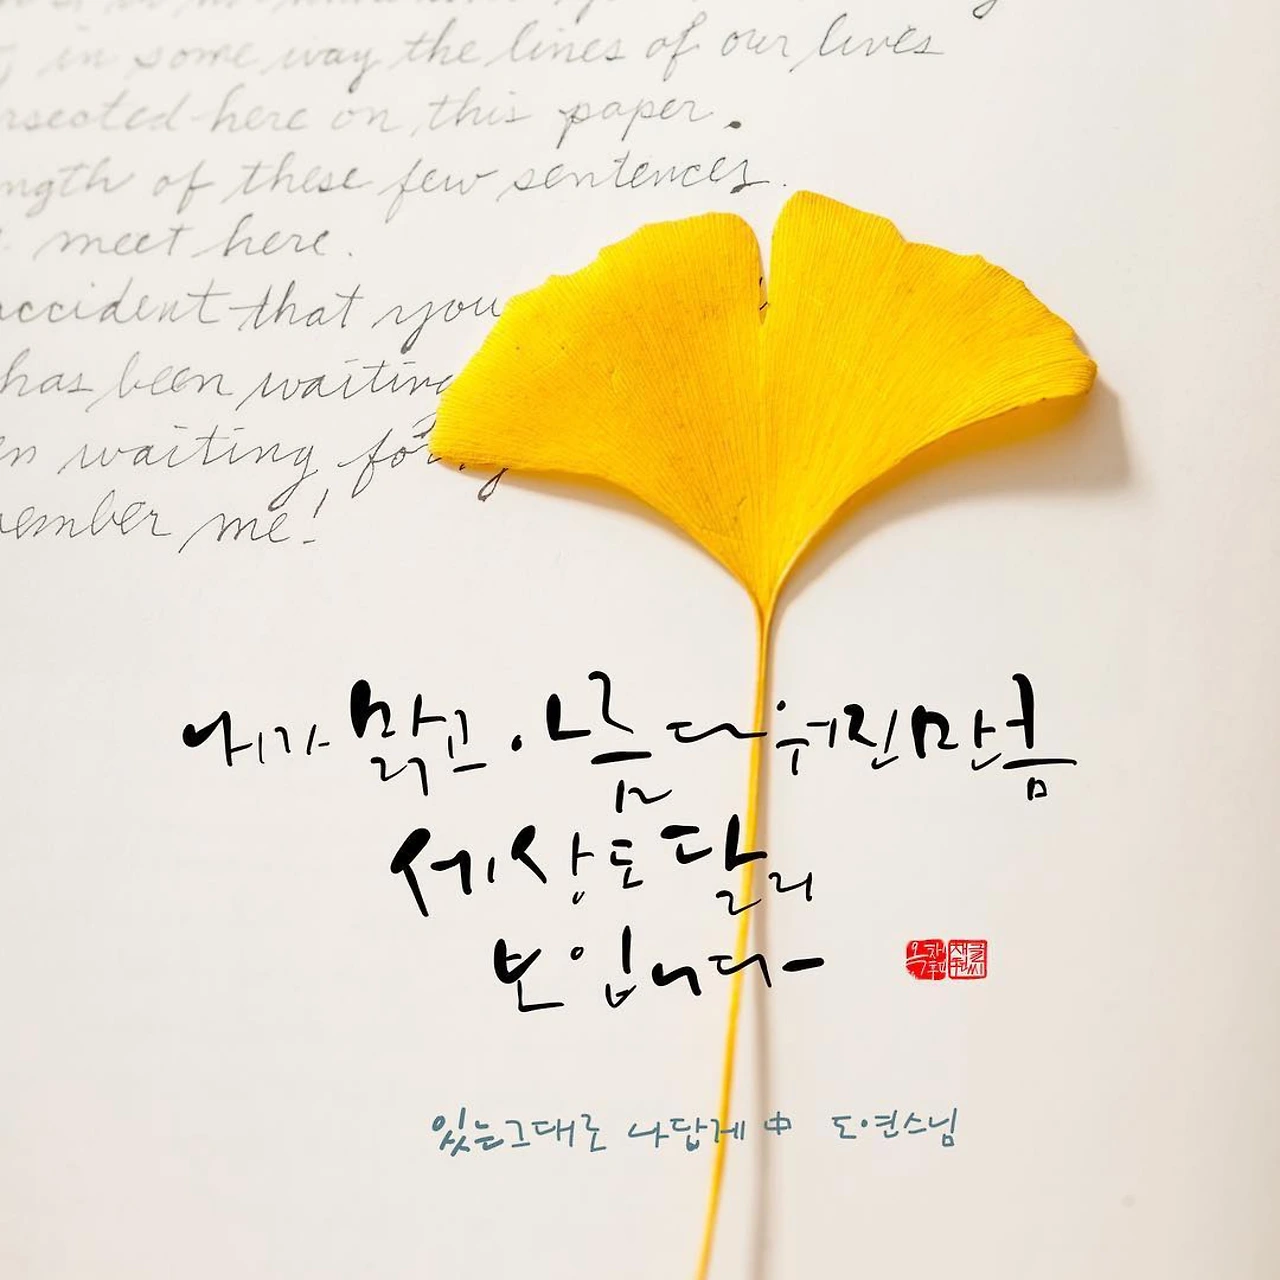 in some way the lines of our lives
here on this paper.
of these few sentences.
meet here.
accident that you
has been waiting
waiting for
me!
내가 맑고 아름다워진 만큼
세상도 달리
보입니다
있는 그대로 나답게 中 도연스님